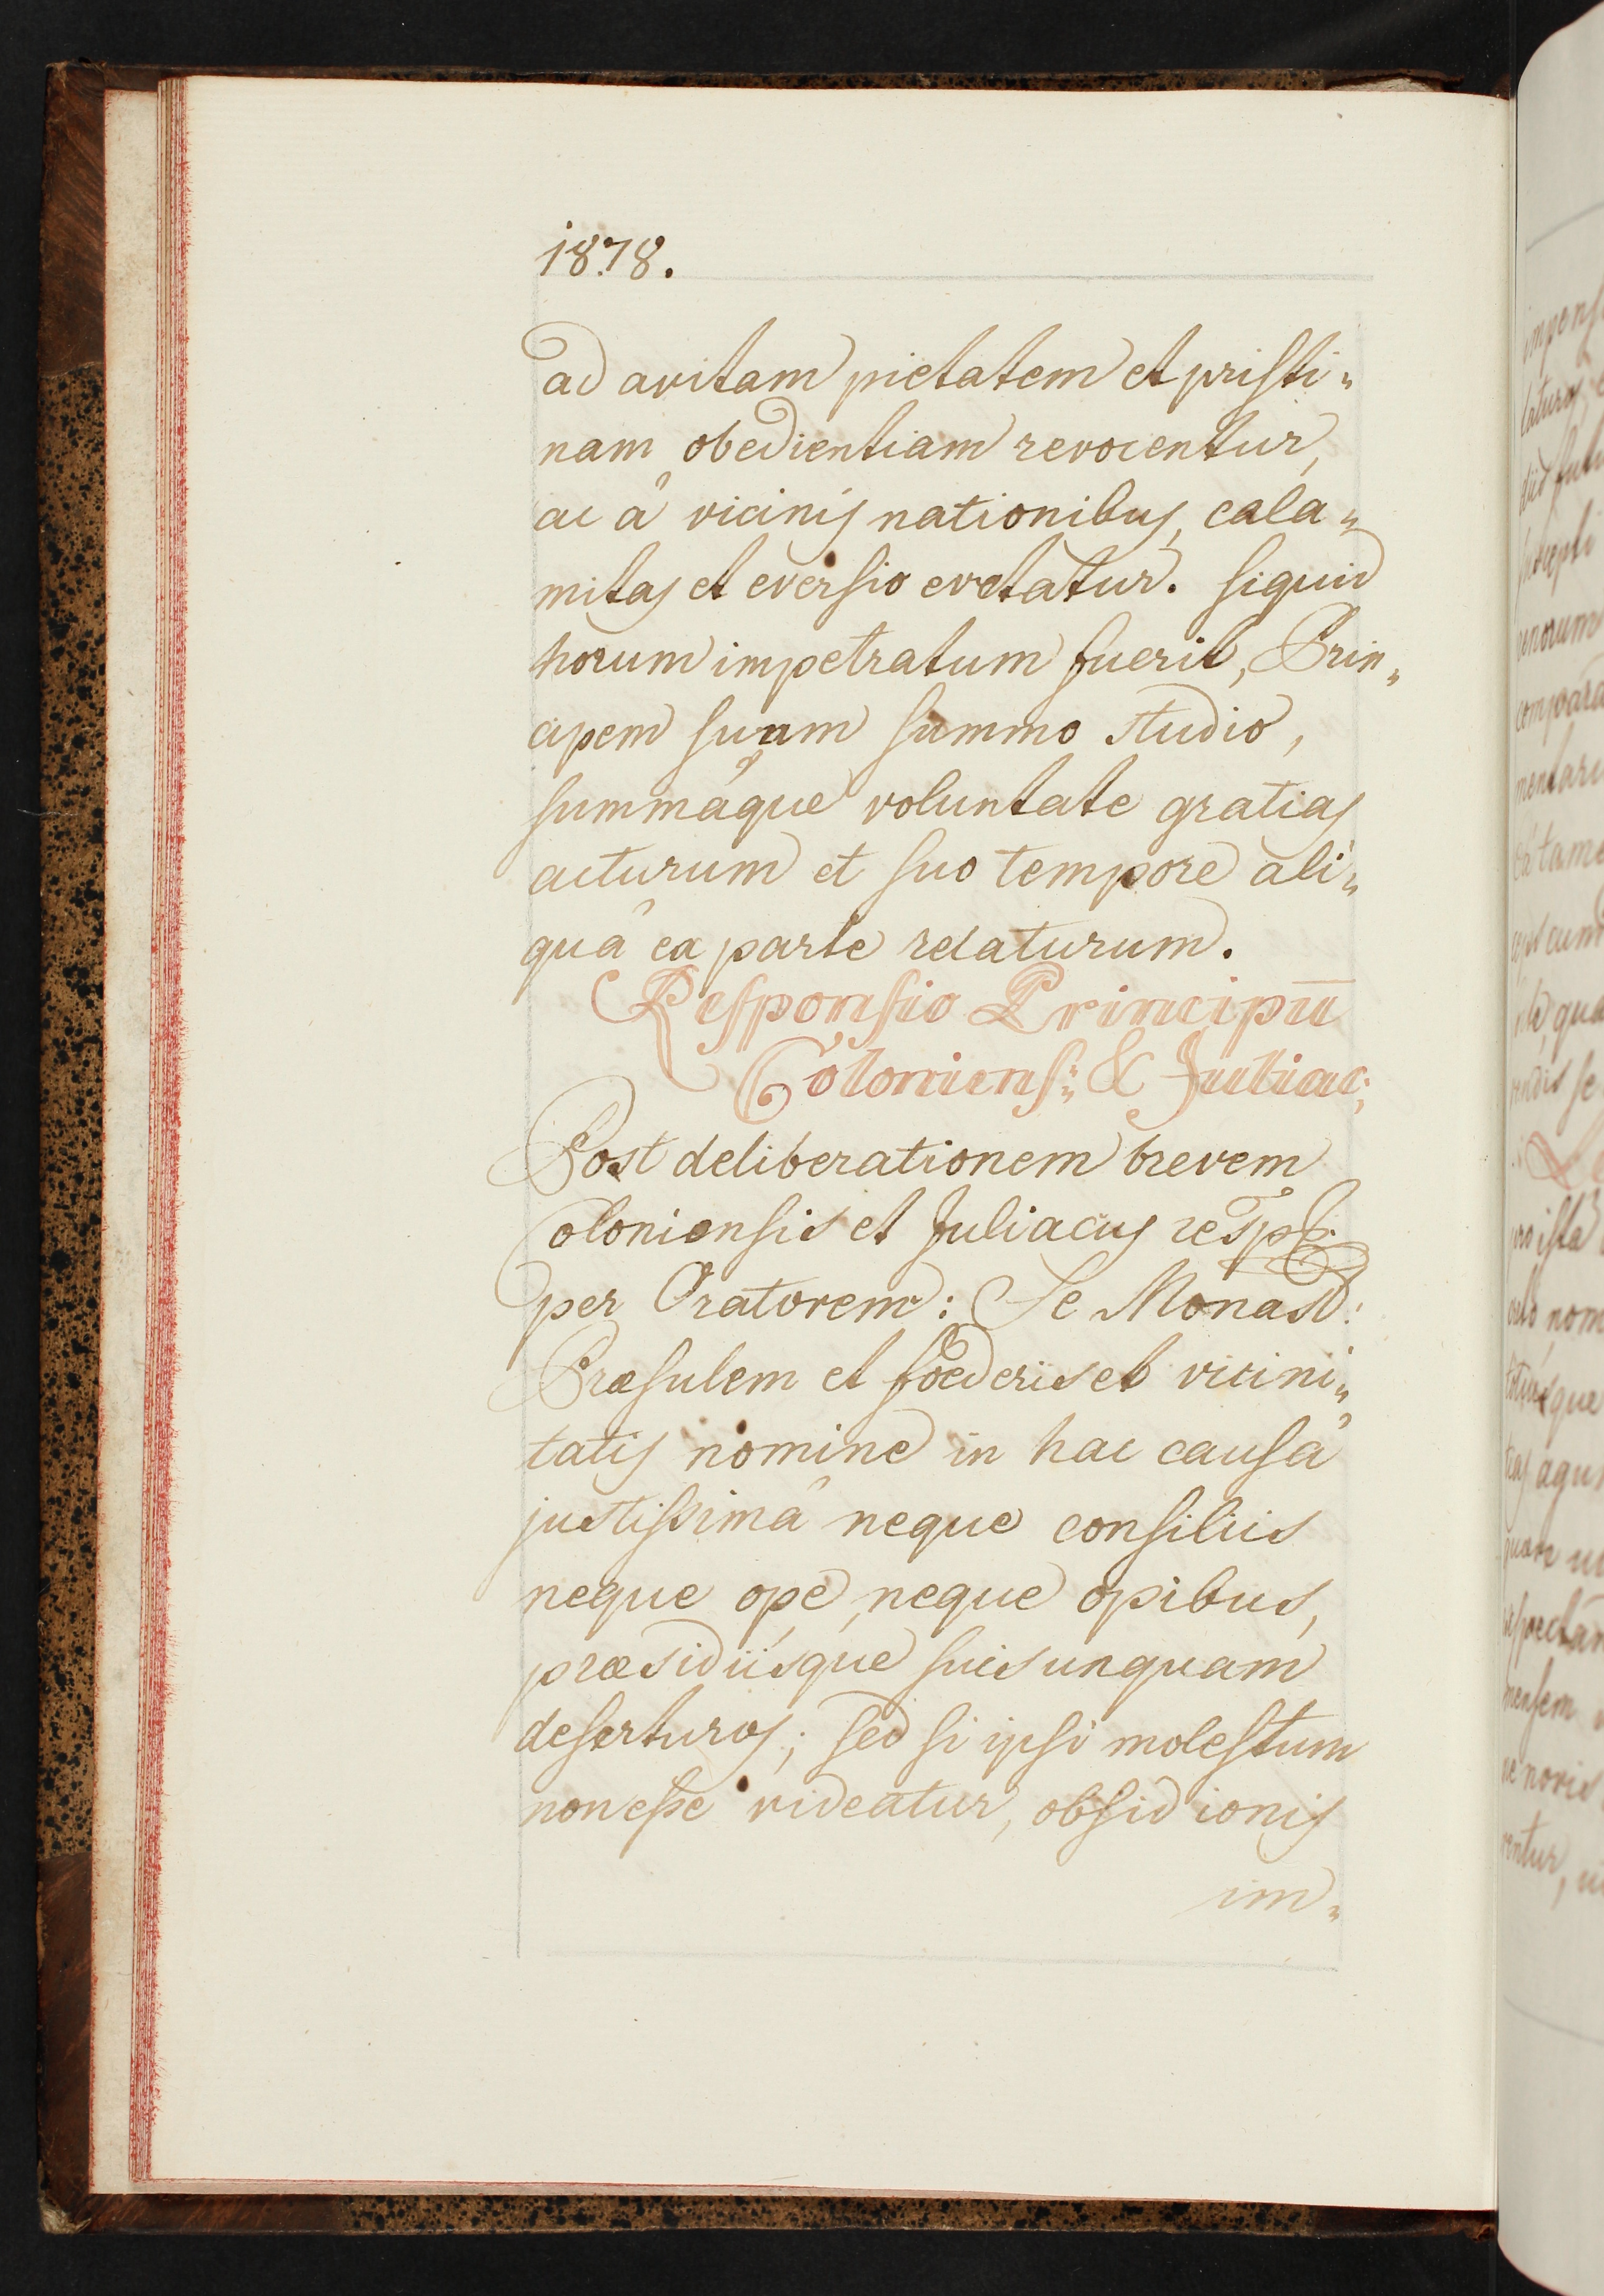 1878.
ad avitam pietatem et pristi„
nam obedientiam revocentur,
ac â vicinis nationibus, cala„
mitas et eversio evetatur. siquid
horum impetratum fuerit, Prin„
cipem suum summo studio,
summáque voluntate gratias
acturum et suo tempore ali„
quâ ea parte relaturum.
Responsio Principū
Coloniens: & Juliac:
Post deliberationem brevem
Coloniensis et Juliacus resp:
per Oratorem: Se Monast:
Præsulem et foederis et vicini„
tatis nomine in hac causâ
justissimâ neque consiliis
neque ope, neque opibus,
præsidiisque suis unquam
deserturos; sed si ipsi molestum
non esse videatur, obsidionis
im„